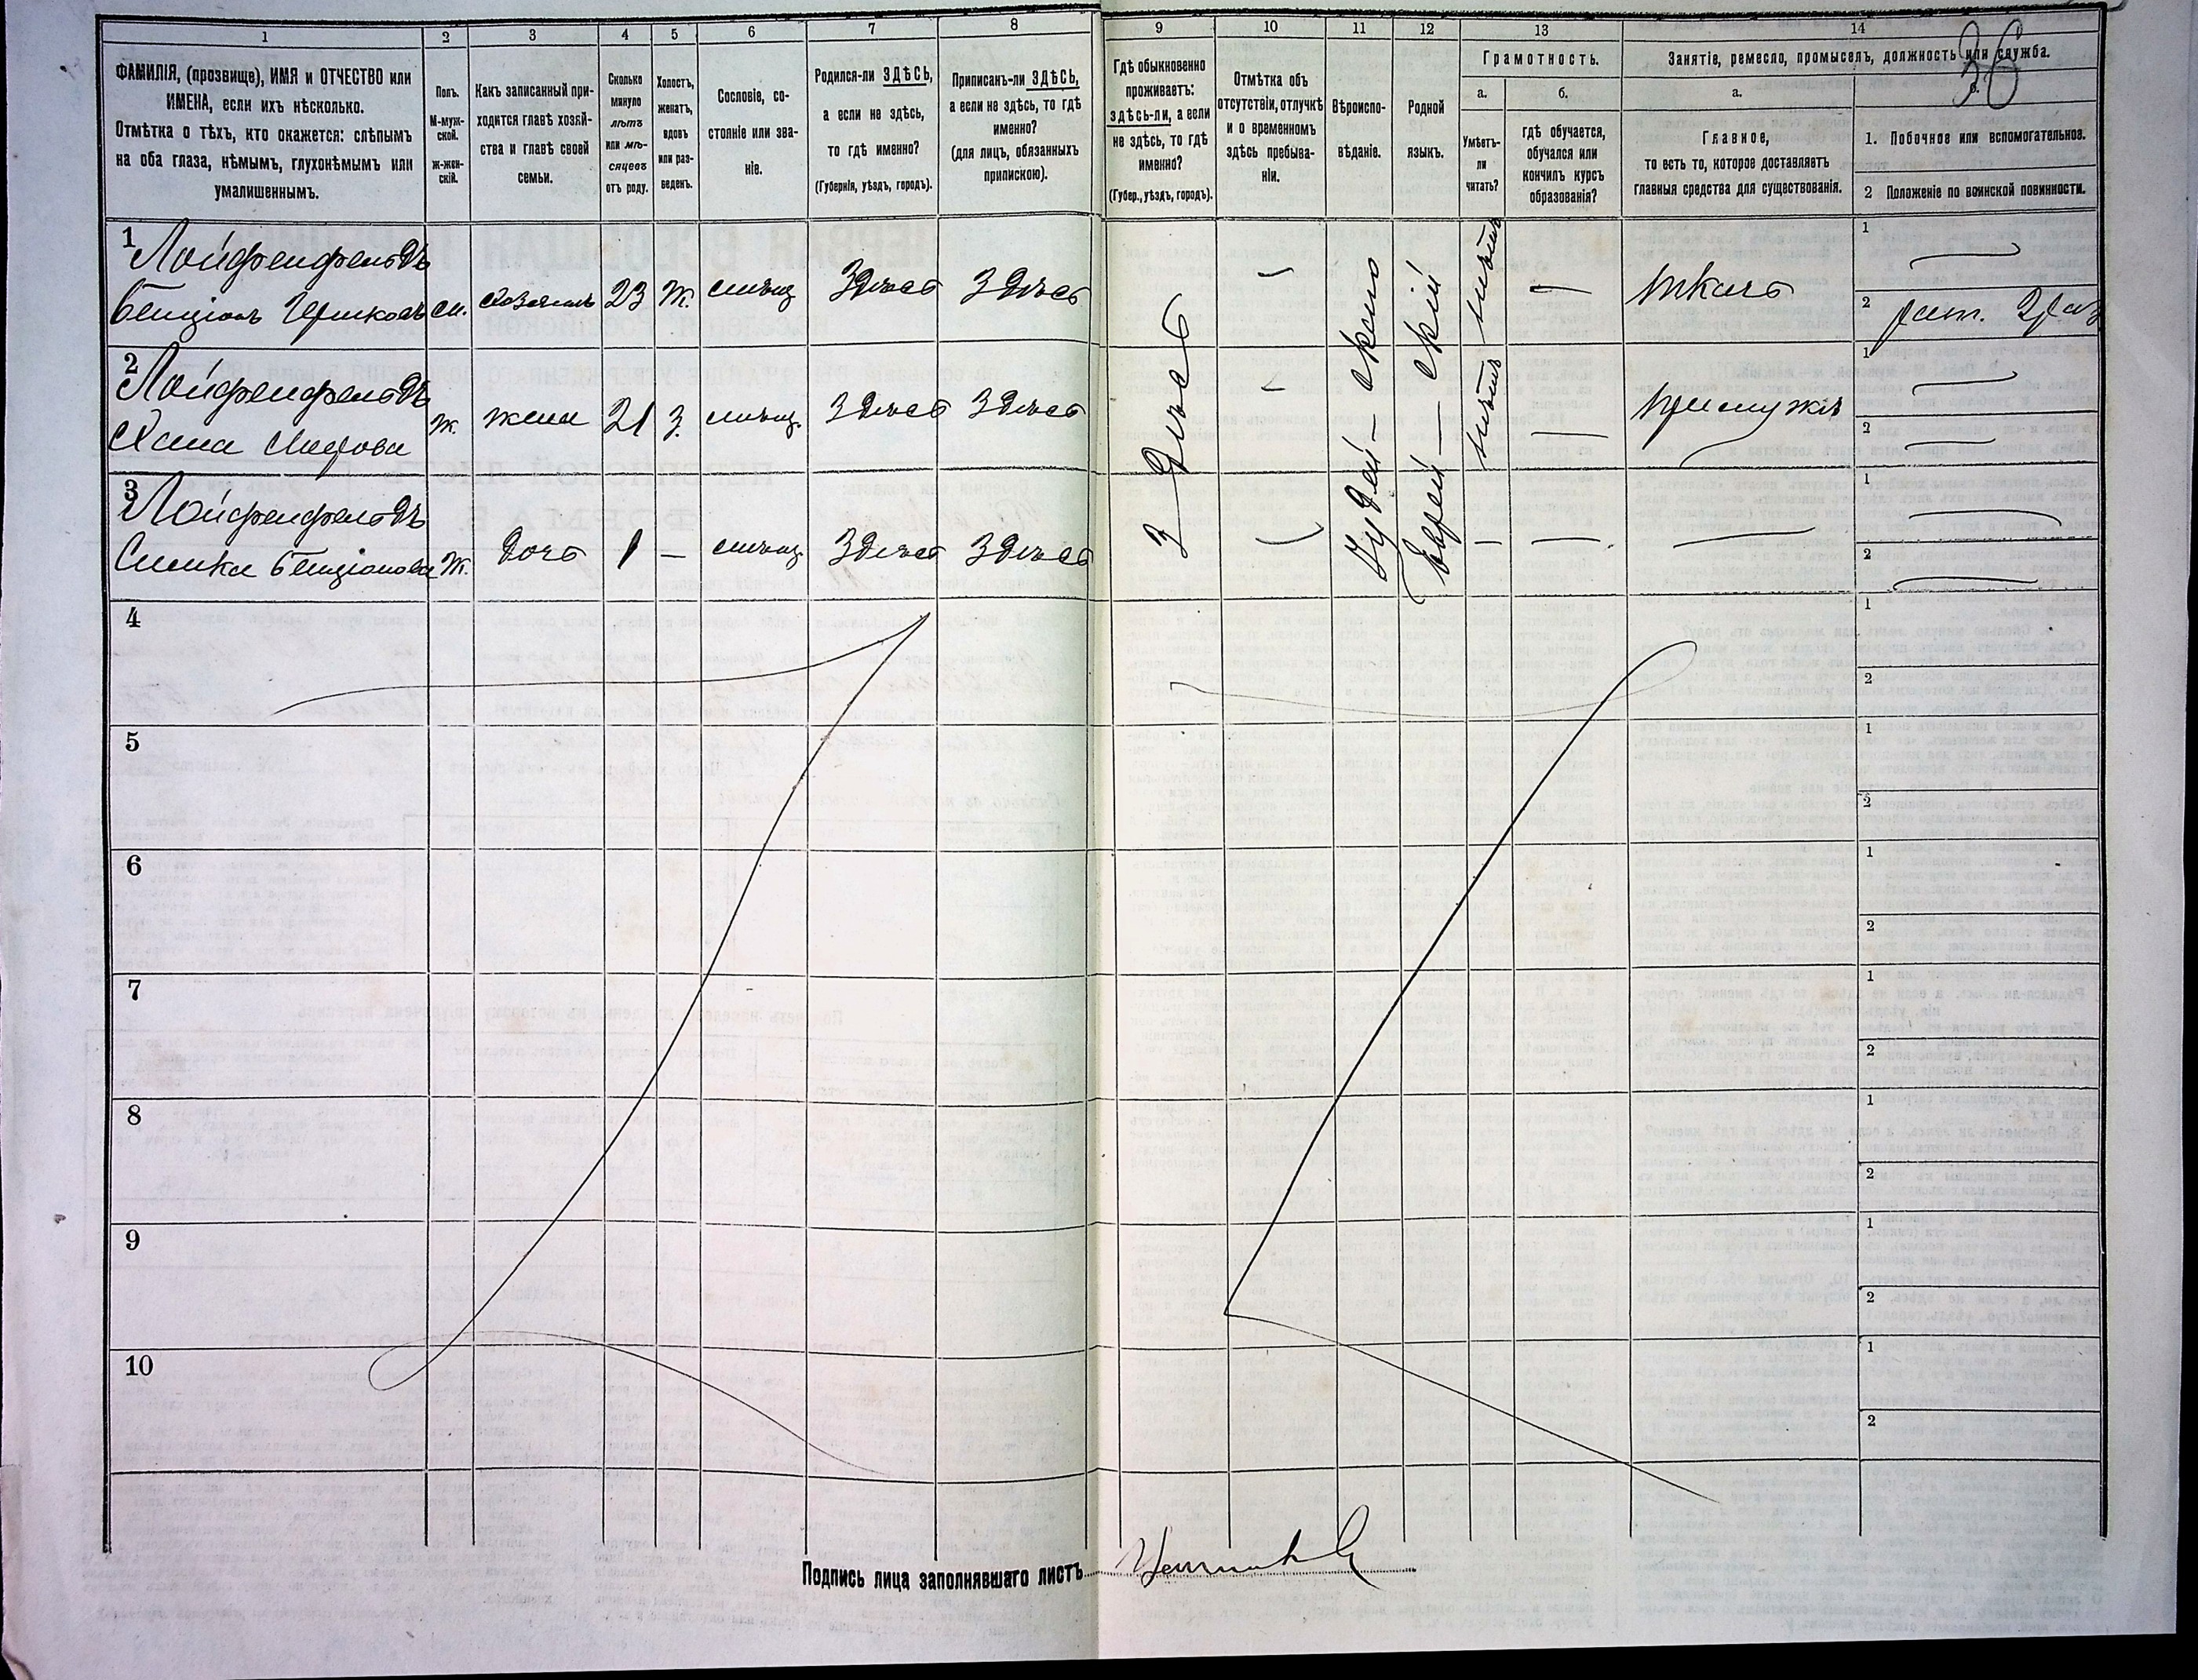 1 2 3 4 5 6 7 8 9 10 11 12 13 14
36
ФАМИЛІЯ, (прозвище), ИМЯ и ОТЧЕСТВО или
ИМЕНА, если ихъ нѣсколько.
Отмѣтка о тѣхъ, кто окажется: слѣпымъ
на оба глаза, нѣмымъ, глухонѣмымъ или
умалишеннымъ.
Полъ.
М-муж-
ской.
ж-жен-
скій.
Какъ записанный при-
ходится главѣ хозяй-
ства и главѣ своей
семьи.
Сколько
минуло
лѣтъ
или мѣ-
сяцевъ
отъ роду.
Холостъ,
женатъ,
вдовъ
или раз-
веденъ.
Сословіе, со-
стояніе или зва-
ніе.
Родился-ли ЗДѢСЬ,
а если не здѣсь,
то гдѣ именно?
(Губернія, уѣздъ, городъ).
Приписанъ-ли ЗДѢСЬ,
а если не здѣсь, то гдѣ
именно?
(для лицъ, обязанныхъ
припискою).
Гдѣ обыкновенно
проживаетъ:
здѣсь-ли, а если
не здѣсь, то гдѣ
именно?
(Губер., уѣздъ, городъ).
Отмѣтка объ
отсутствіи, отлучкѣ
и о временномъ
здѣсь пребыва-
ніи.
Вѣроиспо-
вѣданіе.
Родной
языкъ.
Грамотность.
а.
Умѣетъ-
ли
читать?
б.
гдѣ обучается,
обучался или
кончилъ курсъ
образованія?
Занятіе, ремесло, промыселъ, должность или служба.
а.
Главное,
то есть то, которое доставляетъ
главныя средства для существованія.
1. Побочное или вспомогательное.
2 Положеніе по воинской повинности.
1 Лойфренфельдъ
Бенціонъ м. хозяинъ 23 ж. мѣщ Здѣсь Здѣсь — ткачъ
1 —
2 рат. 2 раз
2 Лойфренфельдъ
Хана Меерова ж. жена 21 з. мѣщ. Здѣсь Здѣсь — прислуга
1 —
2 —
3 Лойфренфельдъ
Симка Бенціонова ж. дочь 1 — мѣщ Здѣсь Здѣсь — — —
1 —
2 —
Здѣсь
Іудей-ского
Еврей-скій
4
1
2
5
1
2
6
1
2
7
1
2
8
1
2
9
1
2
10
1
2
Подпись лица заполнявшаго листъ